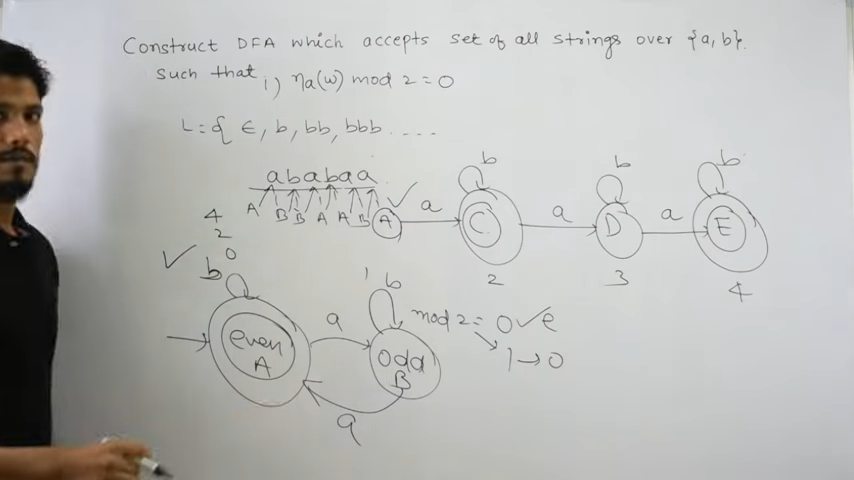 Construct DFA which accepts set of all strings over {a, b}.
such that i) na(w) mod 2 = 0
L = { ∈, b, bb, bbb ....
a b a b a a
A B B A A B A
a C b a D b a E b
2 3 4
4
2
0
b even A a
1 b odd B a
mod 2 = 0 ✓ e
1 → 0